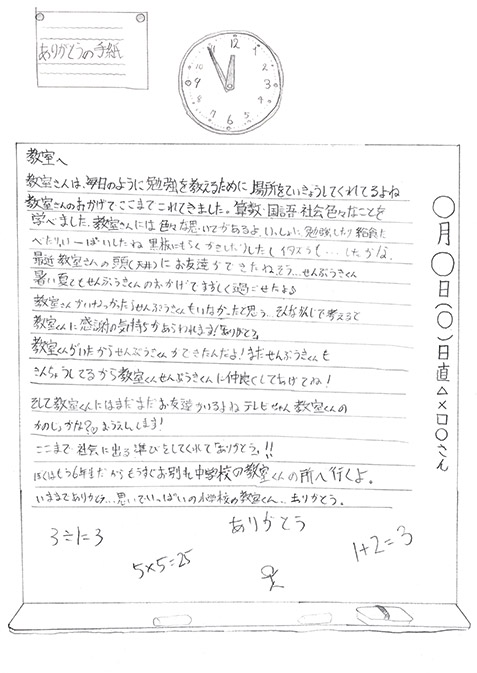 ありがとうの手紙
12
1
2
3
4
5
6
7
8
9
10
11
教室へ
教室さんは、毎日のように勉強を教えるために場所をていきょうしてくれてるよね
教室さんのおかげでここまでこれてきました。算数・国語・社会色々なことを
学べました。教室さんには色々な思いでがあるよ、いっしょに勉強したり給食た
べたりいーぱいしたね 黒板にもらくがきしたりしたしイタズラも…したかな。
最近教室さんの頭(天井)にお友達ができたねそう…せんぷうきくん
暑い夏とてもせんぷうきくんのおかげですずしく過ごせたよ♪
教室さんがいなかったらせんぷうきもいなかったと思う…そんな感じで考えるで
教室くんに感謝の気持ちがあらわれます!ありがとう。
教室くんがいたからせんぷうきくんができたんだよ!まだせんぷうきも
きんちょうしてるから教室くんせんぷうきくんに仲良くしてあげてね!
そして教室くんにはまだまだお友達がいるよねテレビちゃん 教室くんの
かのじょかな?おうえんします!
ここまで社会に出る準びをしてくれて「ありがとう。!!
ぼくはもう6年生だからもうすぐお別れ中学校の教室くんの所へ行くよ。
いままでありがとう…思いでいっぱいの小学校の教室くん…ありがとう。
ありがとう
3÷1=3
5×5=25
1+2=3
○月○日(○)日直△×口○さん